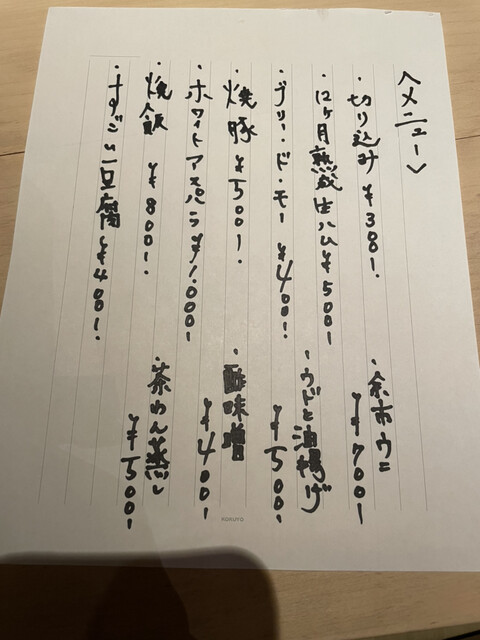 〈メニュー〉
・切り込み ¥380!
・12ヶ月熟成生ハム ¥500!
・ブリー・ド・モー ¥400!
・焼豚 ¥500!
・ホワイトアスパラ ¥1,000!
・焼飯 ¥800!
・すごい豆腐 ¥400!
・余市ウニ
¥700!
・ウドと油揚げ
¥500!
・酢味噌
¥400!
・茶わん蒸し
¥500!
KOKUYO